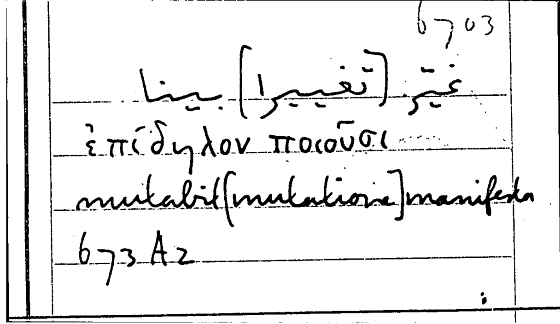 6703
غيّر [تغييرا] بينا
ἐπίδηλον ποιοῦσι
mutabit [mutatione] manifesta
673 A2